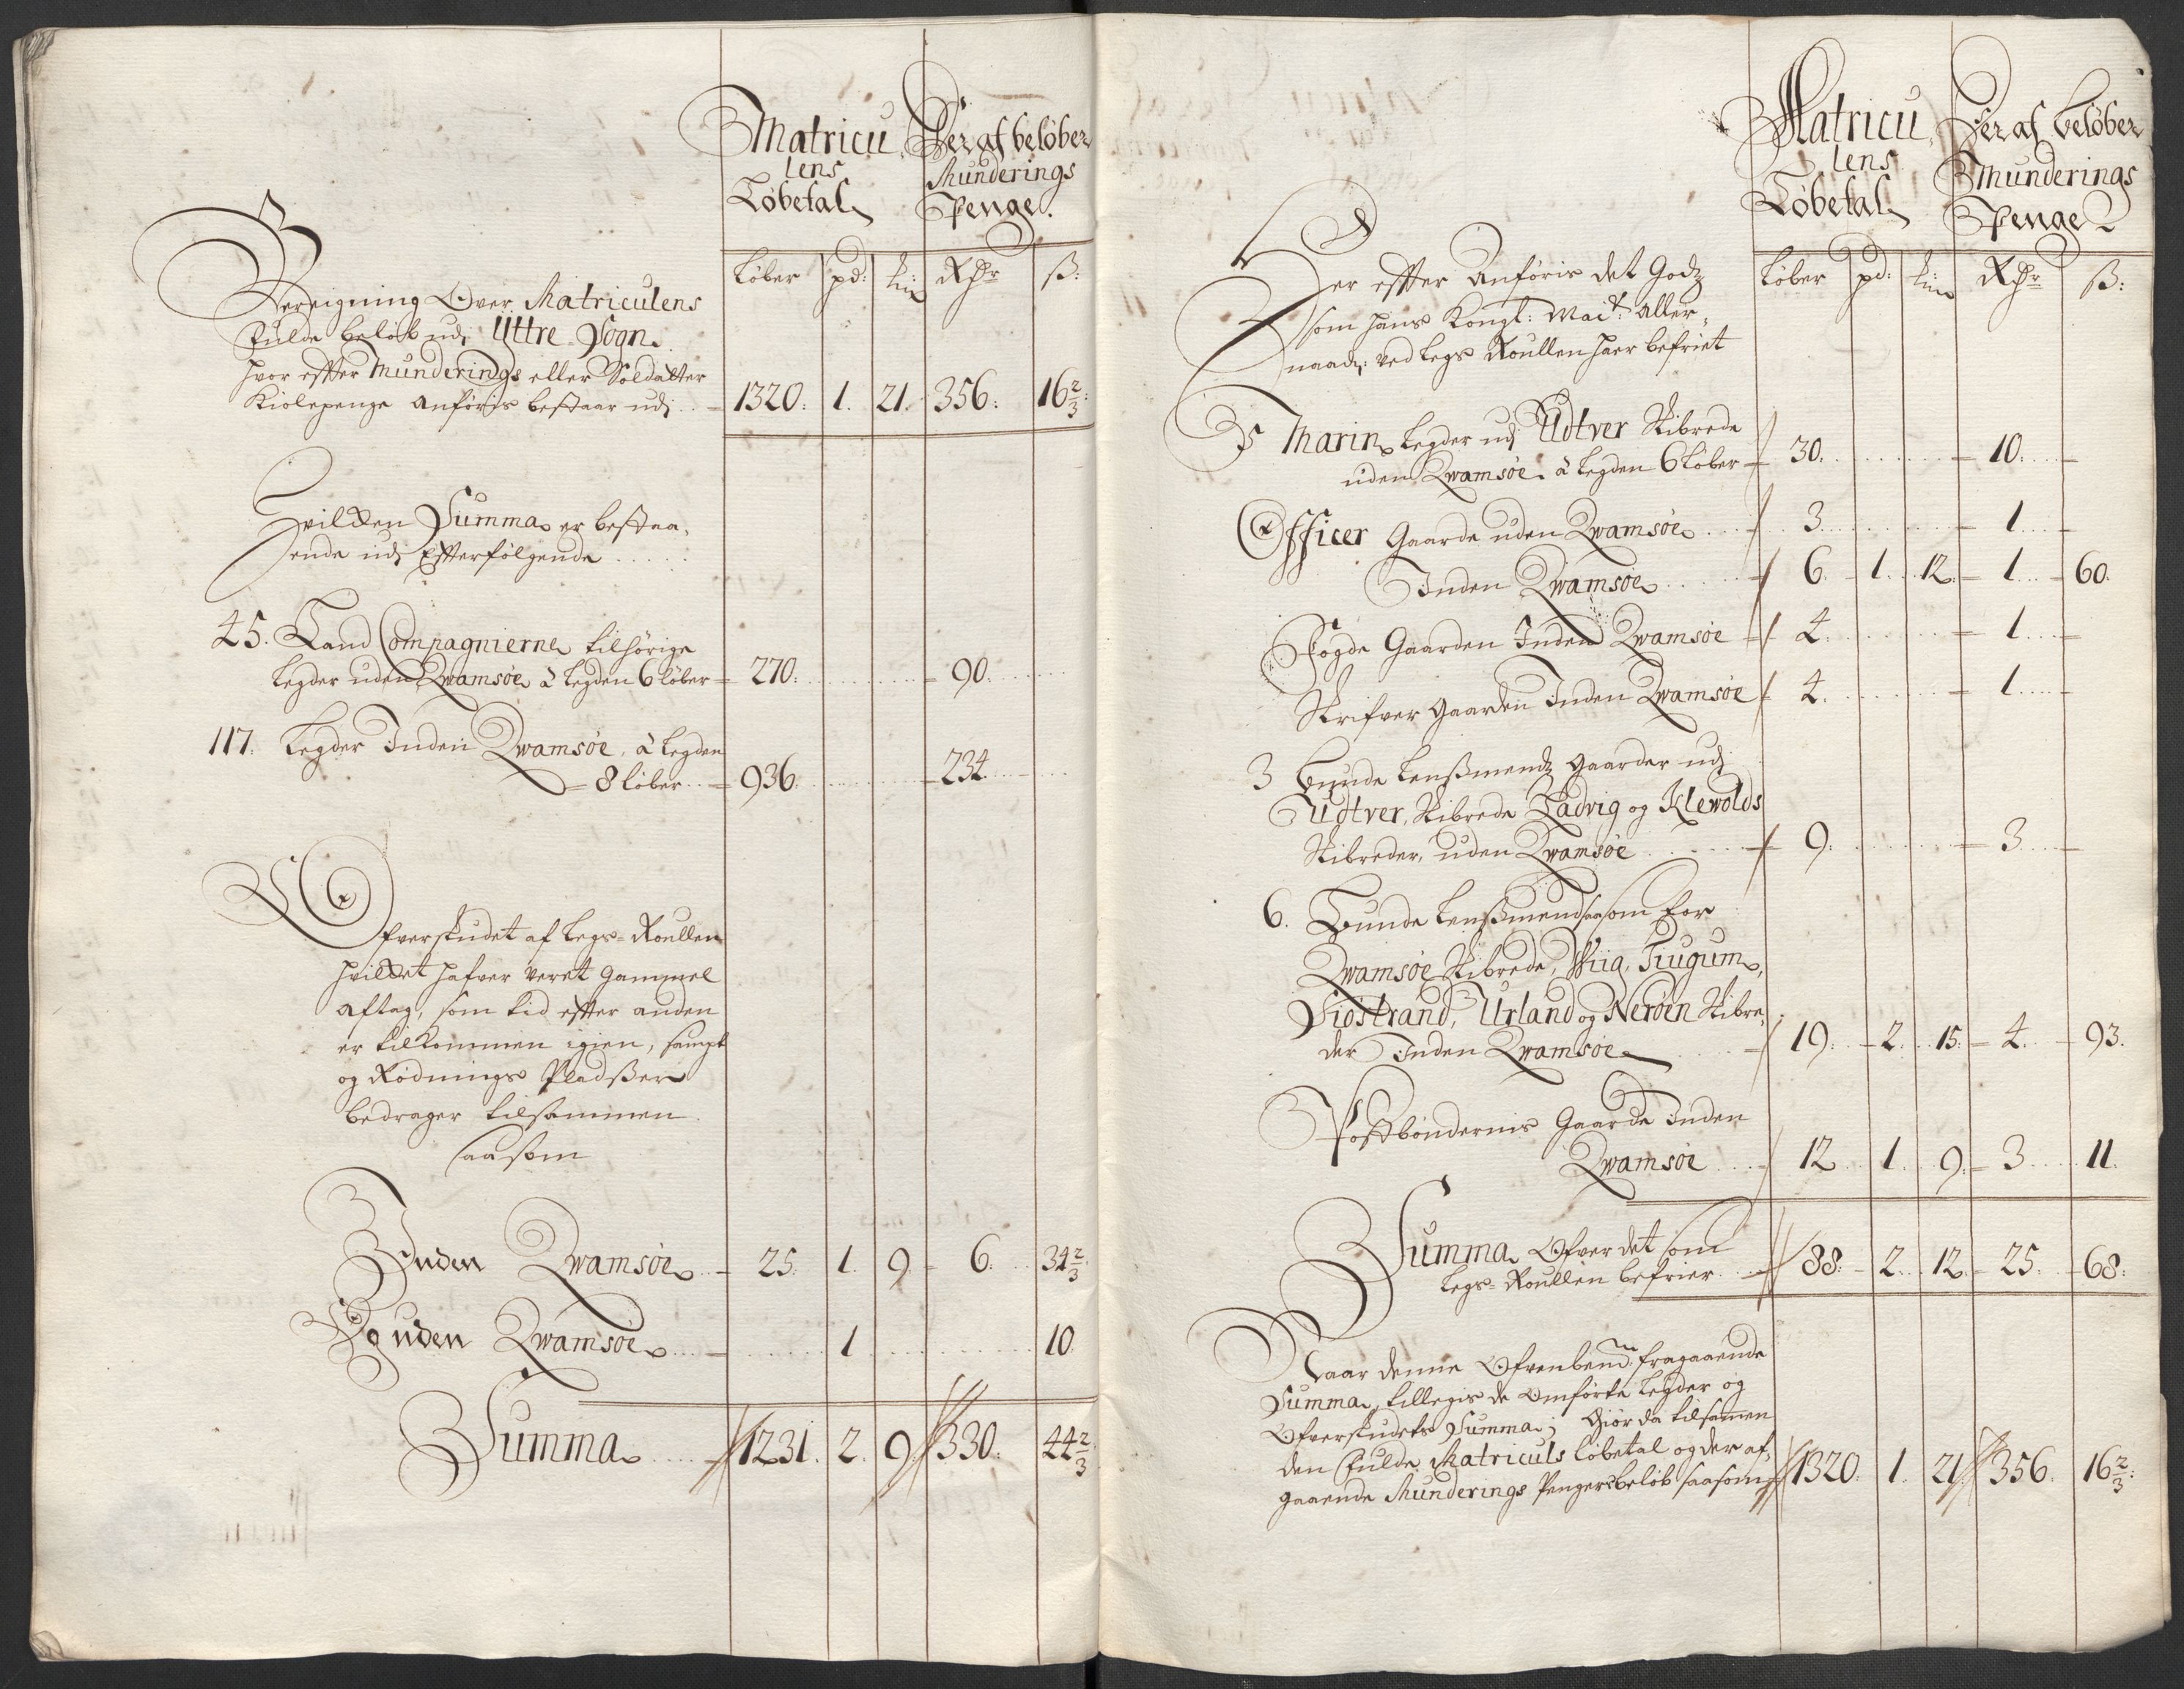 Matricu
lens
Løbetal
Der af beløber
Munderings
Penge.
Løber pd: lm: Rdr ß:
Bereigning Over Matriculens
Fulde beløb udj Uttre Sogn.
hvor effter Munderings eller Soldatter
Kiolepenge anføris bestaar udj .. 1320: 1. 21. 356: 16 2/3:
Hvilcken Summa er bestaa,
ende udj Effterfølgende .....
45. Land Compagnierne tilhørige
Legder uden Qwamsøe à Legden 6 løber 270: 90.
117. Legder Inden Qwamsøe, à Legden
8 løber .. 936. 234.
Ofverskudet af Legs-Roullen
hvilcket hafver veret gammel
aftag, som tid effter anden
er tilkommen igien, sampt
og Rødnings Pladtzer
bedrager tilsammen
saasom
Inden Qwamsøe .. 25. 1. 9. 6. 34 2/3.
Og uden Qwamsøe .... 1 10.
Summa .... 1231. 2. 9. 330: 44 2/3.
Matricu
lens
Løbetal
Der af beløber
Munderings
Penge
Løber pd: lm: Rdr ß:
Her effter Anføris det Godtz
som hans Kongl: Mait: Aller,
naadr: ved Legs Roullen haer befriet
5 Marin Legder udj Udtver Skibrede
uden Qwamsøe à Legden 6 Løber 30. 10.
Officer Gaarde uden Qwamsøe . 3. 1.
Inden Qwamsøe .... 6. 1. 12. 1. 60.
Fogde Gaarden Inden Qwamsøe 4. 1.
Skrifver Gaarden Inden Qwamsøe 4. 1.
3 Bunde Lenßmends Gaarder udj
Udtver, Skibrede Ladvig og Klewolds
Skibreder, uden Qwamsøe .... 9. 3.
6. Bunde Lenßmend saasom for
Qwamsøe Skibrede, Wiig, Tiugum,
Siostrand, Urland og Nerøen Skibre,
der Inden Qwamsøe 19. 2. 15. 4. 93.
Postbøndernis Gaarde Inden
Qwamsøe ... 12. 1. 9. 3. 11.
Summa Ofver det som
Legs-Roullen befrier .. 88. 2. 12. 25. 68.
Naar denne Ofvenbemte: fragaaende
Summa tillegis de Omførte Legder og
Ofverskudets Summa; Giør da tilsamen
den Fulde Matriculs løbetal og der af,
gaaende Munderings Pengers beløb saasom 1320. 1. 21. 356. 16 2/3: